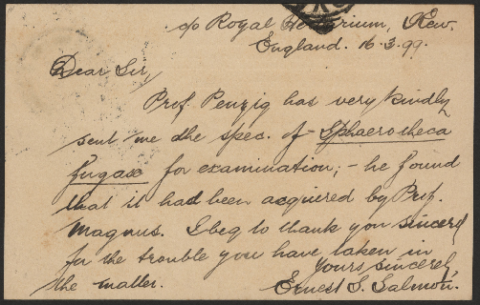 c/o Royal Herbarium, Kew.
England. 16.3.99.
Dear Sir,
Prof. Penzig has very kindly
sent me the spec. of Sphaerotheca
fugax for examination; - he found
that it had been acquired by Prof.
Magnus. I beg to thank you sincerely
for the trouble you have taken in
the matter.
Yours sincerely,
Ernest S. Salmon.